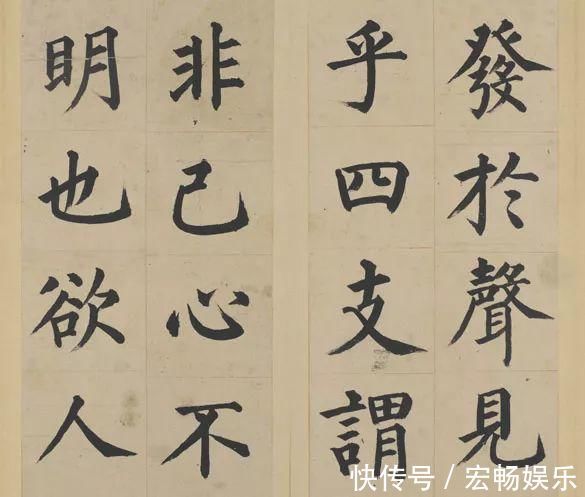 發於聲見
乎四支謂
非己心不
明也欲人
快传号/宏畅娱乐